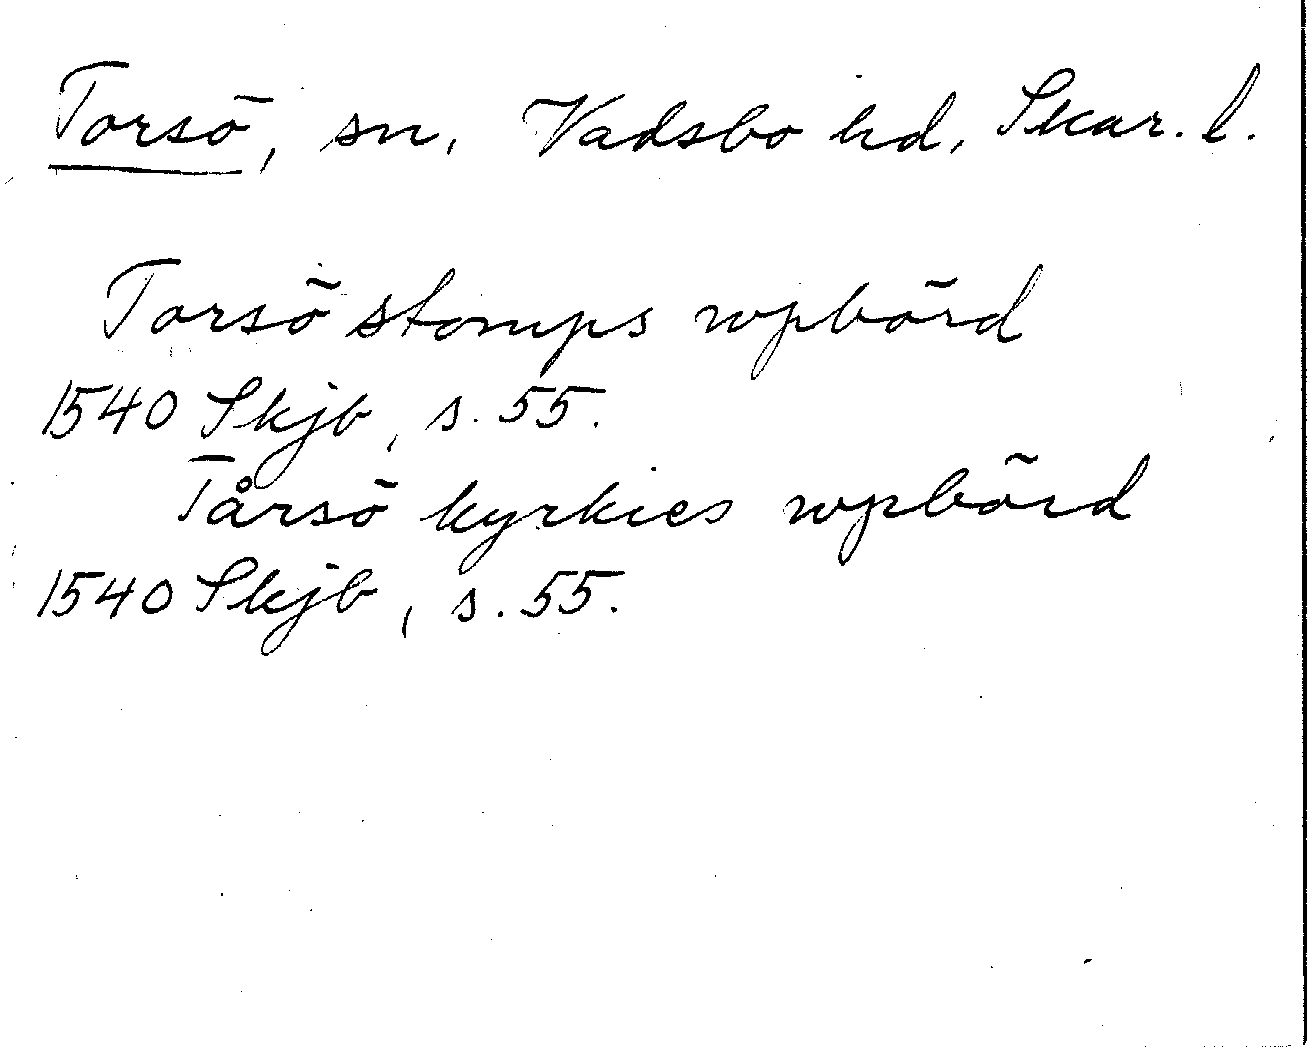 Torsö, sn, Vadsbo hd, Skar. l.
Torsö stomps wpbörd
1540 Skjb, s. 55.
Tårsö kyrkies wpbörd
1540 Skjb, s. 55.